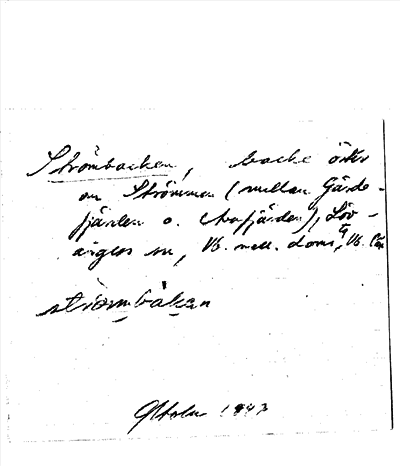 Strömbacken, backe öster
om Strömmen (mellan Gärde-
fjärden o. Avafjärden), Löv-
ånger sn, Vb. mell. doms, Vb. län
strömbakan
Holm 1943